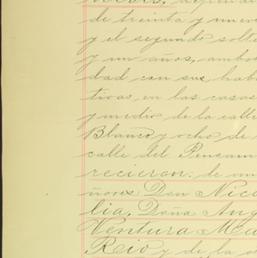 de treinta y nueve
y el segundo solte
y un años, ambos
dad con sus hab
tivas, en las casas
y medio de la calle
Blanco y ocho de
calle del Pensam
recieron: de un
ñores Don Nico
lia, Doña Ang
Ventura Ma
Reio y de la